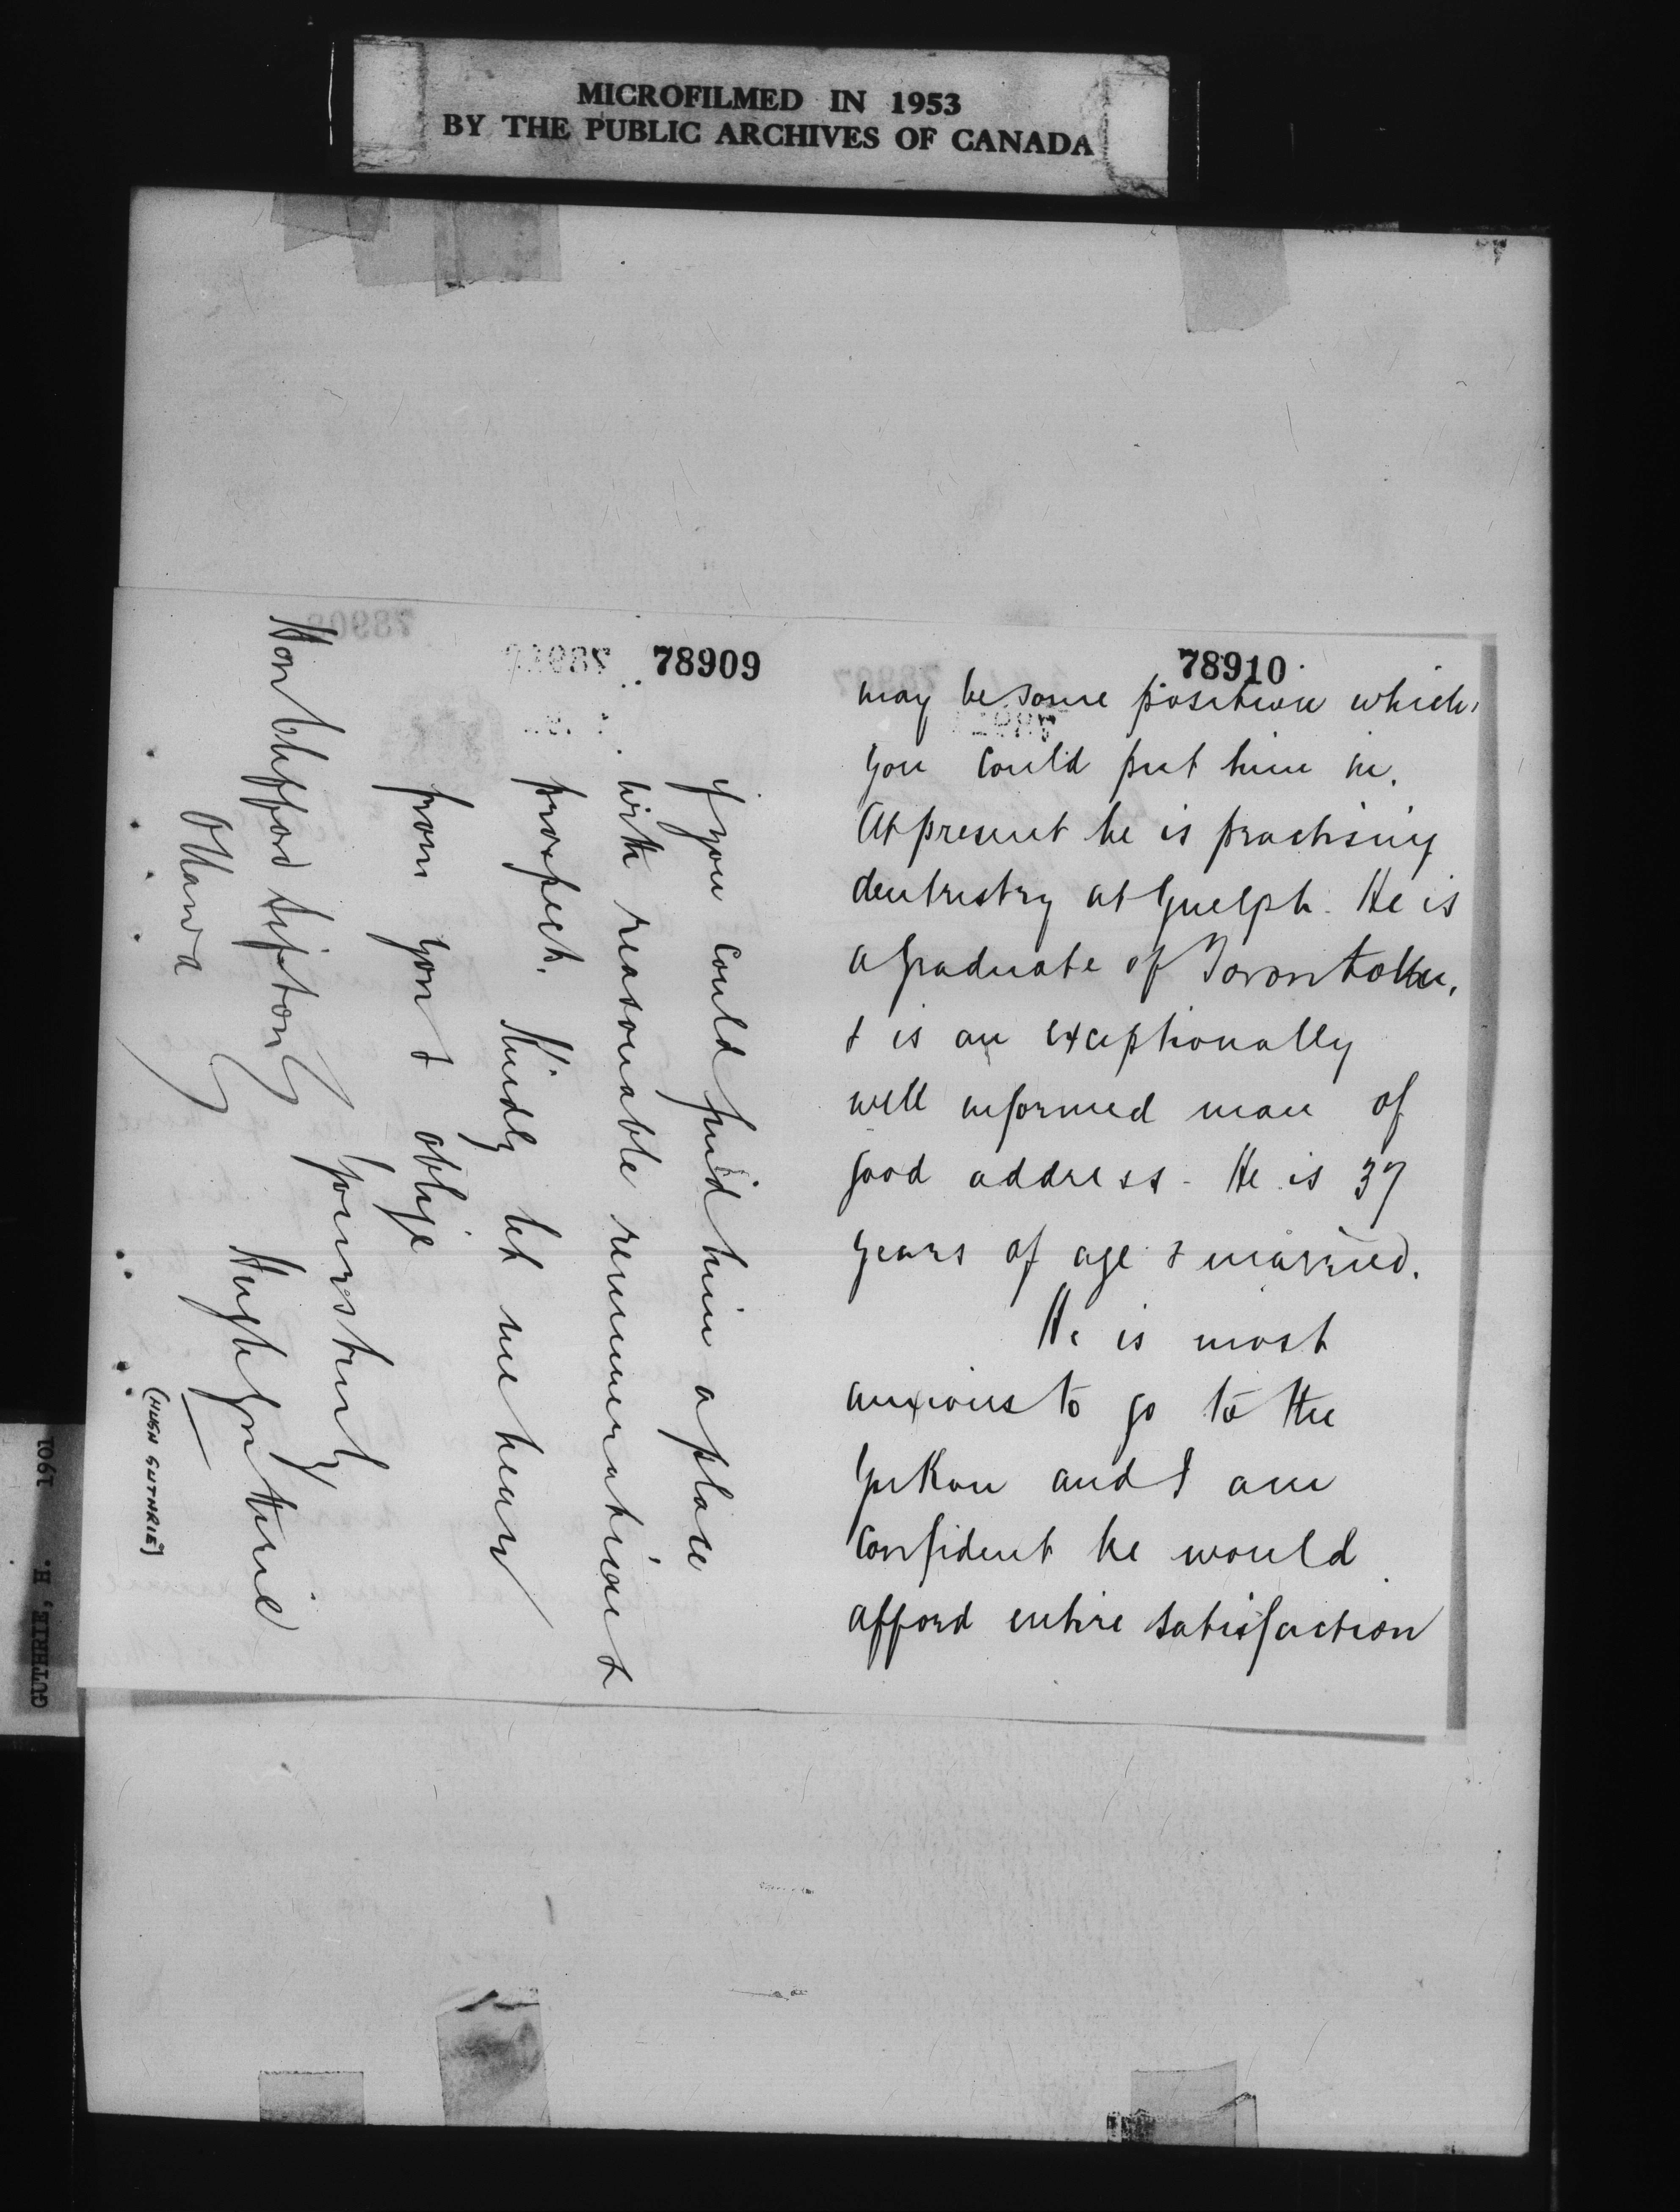 MICROFILMED IN 1953
BY THE PUBLIC ARCHIVES OF CANADA
78910
may be some position which
you could put him in.
At present he is practising
dentistry at Guelph. He is
a graduate of Toronto
& is an exceptionally
well informed man of
good address - He is 37
years of age & married.
He is most
anxious to go to the
Yukon and I am
confident he would
afford entire satisfaction
78909
if you could find him a place
with reasonable remuneration &
prospect. Kindly let me hear
from you & oblige
Yours truly
Hugh Guthrie
(HUGH GUTHRIE)
Hon Clifford Sifton
Ottawa
GUTHRIE, H. 1901